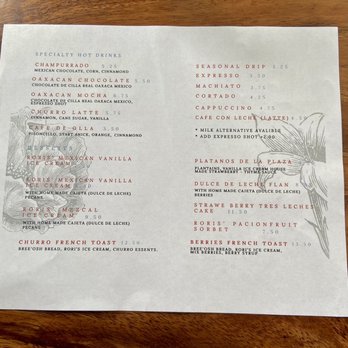 SPECIALTY HOT DRINKS
CHAMPURRADO 5.25
MEXICAN CHOCOLATE, CORN, CINNAMOND
OAXACAN CHOCOLATE 5.50
CHOCOLATE DE CILLA REAL OAXACA MEXICO
OAXACAN MOCHA 6.75
CHOCOLATE DE CILLA REAL OAXACA MEXICO,
ESPRESSO SHOT
CHURRO LATTE 5.75
CINNAMON, CANE SUGAR, VANILLA
CAFE DE OLLA 3.50
PILONCILLO, START ANICE, ORANGE, CINNAMON
DESSERTS
RORIS' MEXICAN VANILLA
ICE CREAM
RORIS' MEXICAN VANILLA
ICE CREAM
WITH HOME MADE CAJETA (DULCE DE LECHE)
PECANS
RORIS' MEZCAL
ICE CREAM 9.50
WITH HOME MADE CAJETA (DULCE DE LECHE)
PECANS
CHURRO FRENCH TOAST 12.50
BREE'OSH BREAD, RORI'S ICE CREAM, CHURRO ESSENTS.
SEASONAL DRIP 3.25
EXPRESSO 3.50
MACHIATO 3.75
CORTADO 4.25
CAPPUCCINO 4.75
CAFE CON LECHE (LATTE)
* MILK ALTERNATIVE AVALIBLE
* ADD EXPRESSO SHOT
PLATANOS DE LA PLAZA
PLANTAINS, VANILLA ICE CREAM
MADE STRAWBERRY - THYME SAUCE
DULCE DE LECHE FLAN
WITH HOME MADE CAJETA (DULCE DE LECHE)
BERRIES
STRAWE BERRY TRES LECHES
CAKE 11.50
RORIS' PACIONFRUIT
SORBET 7.50
BERRIES FRENCH TOAST 12.50
BREE'OSH BREAD, RORI'S ICE CREAM,
MIX BERRIES, BERRY SYRUP